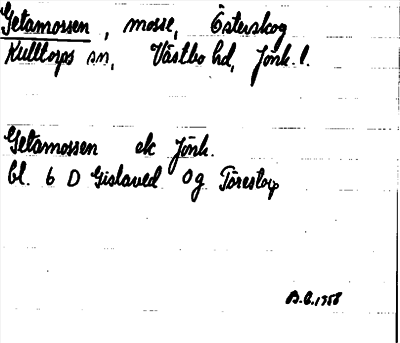 Getamossen, mosse, Österskog
Kulltorps sn, Västbo hd, Jönk. l.
Getamossen ek Jönk.
bl. 6 D Gislaved Og Törestorp
B.C. 1958